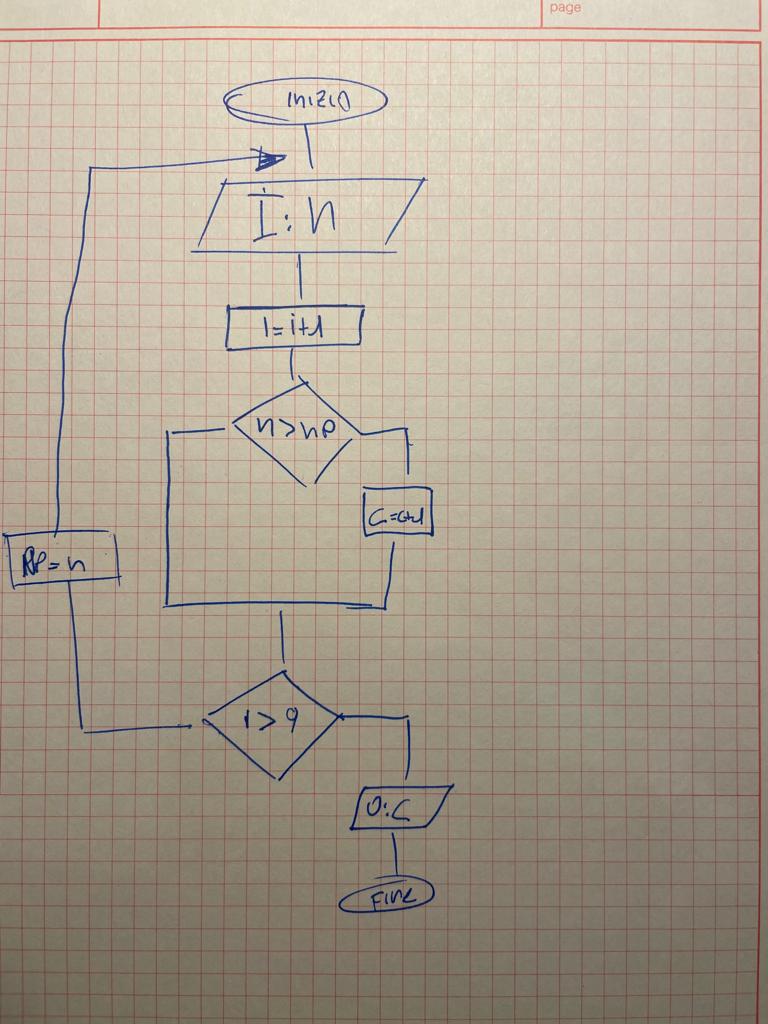 page
INIZIO
I: n
I=i+1
n>np
C=C+1
NP=n
I>9
O:C
FINE